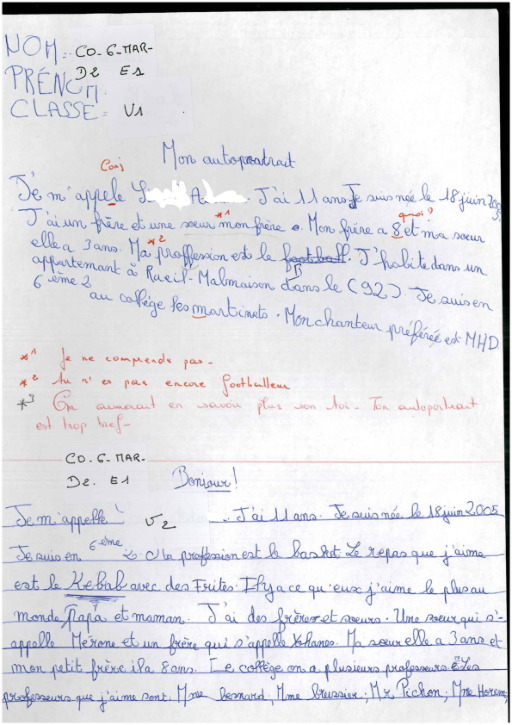 NOM: CO-6-MAR-
PRÉNOM D2 E1
CLASSE: V1
Mon autoportrait
Conj
Je m'appele J'ai 11 ans Je suis née le 18 juin 2005
quoi?
J'ai un frère et une sœur mon frère *1. Mon frère a 8 et ma sœur
elle a 3 ans. Ma *2 proffession est le football. J'habite dans un
appartement à Rueil-Malmaison dans le (92) Je suis en
6 ème 2 au collége les martinets. Mon chanteur préférée est MHD.
*1 Je ne comprends pas.
*2 tu n'es pas encore footballeur
*3 On aimerait en savoir plus son toi. Ton autoportrait
est trop bref-
CO-6-MAR-
D2. E1 Bonjour!
Je m'appelle V2 J'ai 11 ans. Je suis née le 18 juin 2005
Je suis en 6-ème 2. Ma profession est le basket Le repas que j'aime
est le Kebab avec des Frites. Il y a ce qu'eux j'aime le plus au
monde Papa et maman. J'ai des frères et sœurs. Une sœur qui s'-
appelle Mérone et un frère qui s'appelle Khanes. Ma sœur elle a 3 ans et
mon petit frère il a 8 ans. Le collège on a plusieurs professeurs Les
professeurs que j'aime sont. Mme Besnard, Mme brussier; Mr. Pichon; Mme